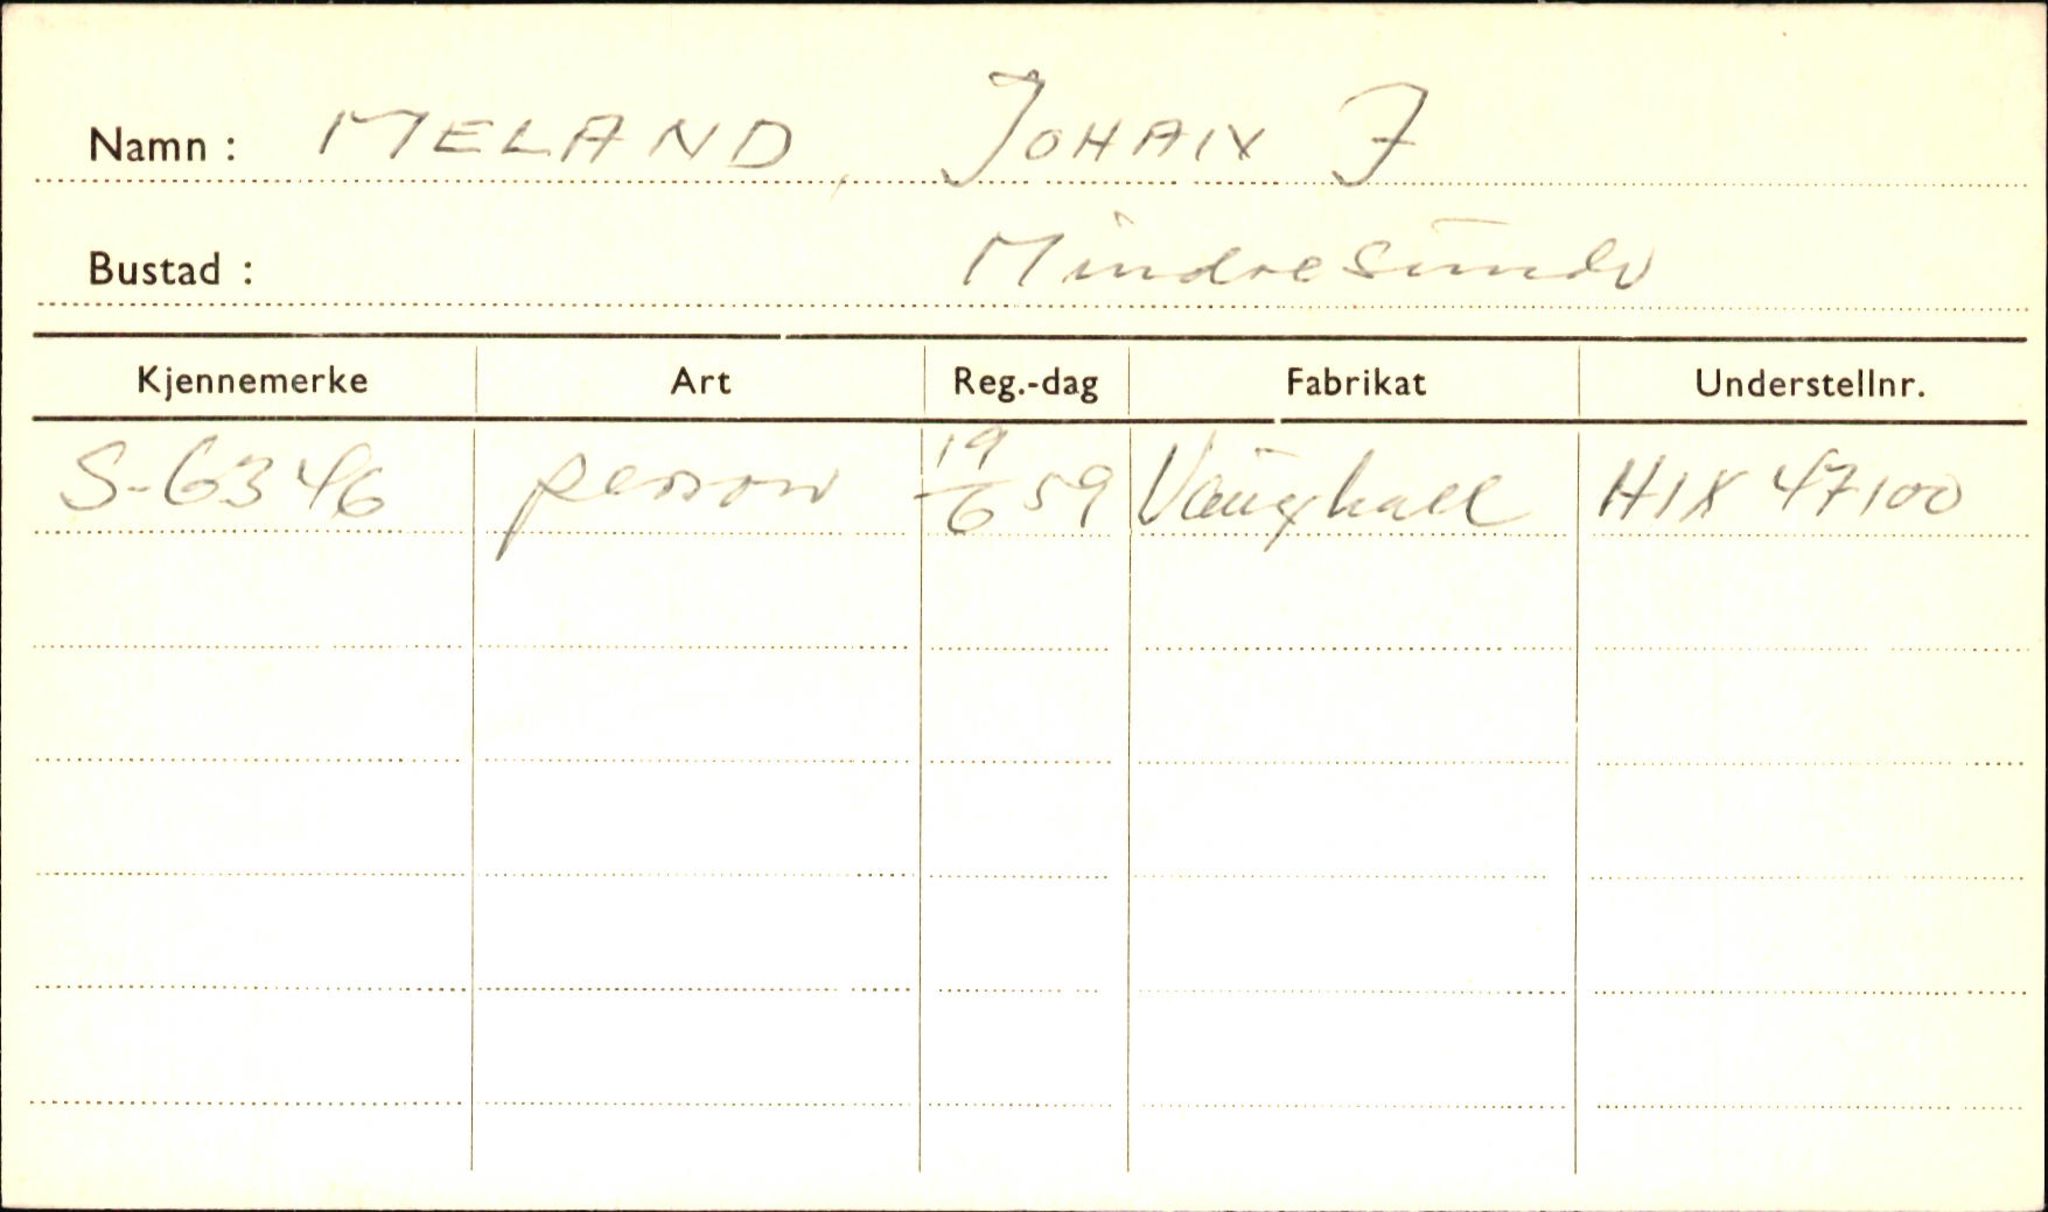 Namn : MELAND, JOHAN J
Bustad : Mindresunde
Kjennemerke Art Reg.-dag Fabrikat Understellnr.
S-6346 person 19/6 59 Vauxhall HIX 47100